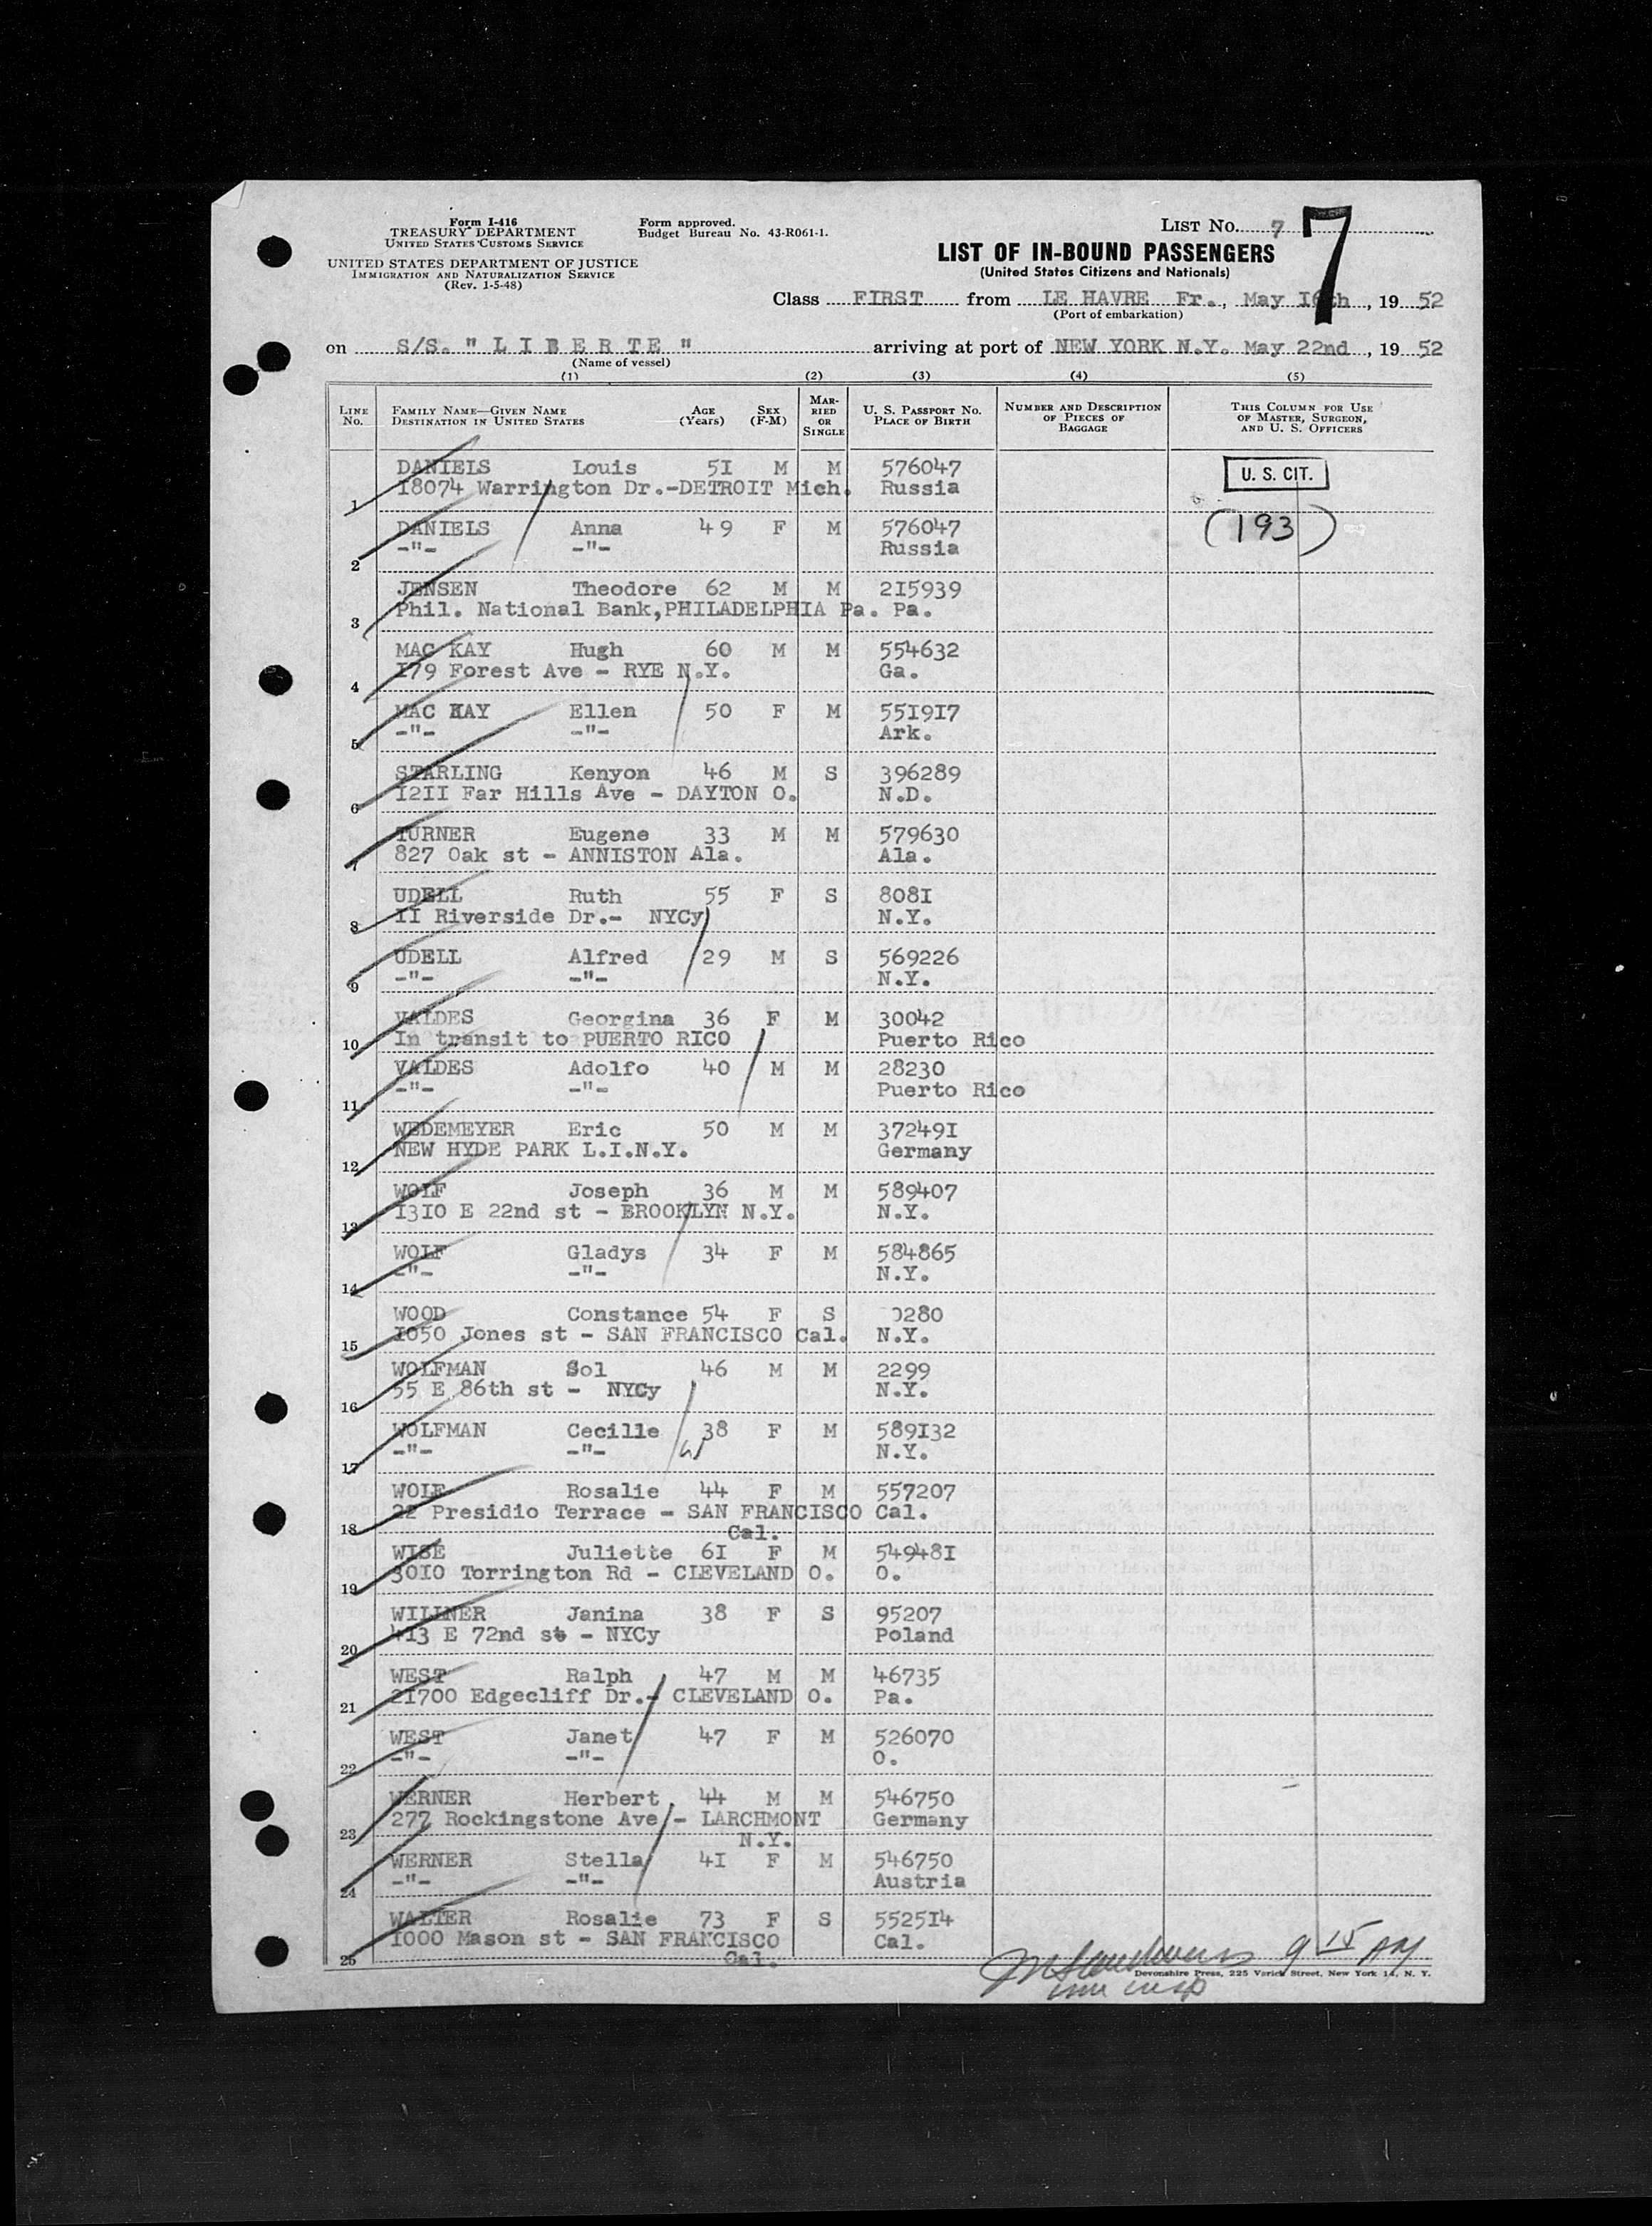 Form I-416
TREASURY DEPARTMENT
UNITED STATES CUSTOMS SERVICE
UNITED STATES DEPARTMENT OF JUSTICE
IMMIGRATION AND NATURALIZATION SERVICE
(Rev. 1-5-48)
Form approved.
Budget Bureau No. 43-R061-1.
LIST No. 7
7
LIST OF IN-BOUND PASSENGERS
(United States Citizens and Nationals)
Class FIRST from LE HAVRE Fr., May I6th, 19 52
(Port of embarkation)
on S/S. " L I B E R T E " arriving at port of NEW YORK N.Y. May 22nd, 19 52
(Name of vessel)
(1) (2) (3) (4) (5)
LINE No. FAMILY NAME—GIVEN NAME DESTINATION IN UNITED STATES AGE (Years) SEX (F-M) MARRIED OR SINGLE U. S. PASSPORT NO. PLACE OF BIRTH NUMBER AND DESCRIPTION OF PIECES OF BAGGAGE THIS COLUMN FOR USE OF MASTER, SURGEON, AND U. S. OFFICERS
DANIELS Louis 5I M M 576047 U. S. CIT.
1 I8074 Warrington Dr.-DETROIT Mich. Russia
DANIELS Anna 49 F M 576047 (193)
2 -"- -"- Russia
JENSEN Theodore 62 M M 2I5939
3 Phil. National Bank,PHILADELPHIA Pa. Pa.
MAC KAY Hugh 60 M M 554632
4 I79 Forest Ave - RYE N.Y. Ga.
MAC KAY Ellen 50 F M 55I9I7
5 -"- -"- Ark.
STARLING Kenyon 46 M S 396289
6 I2II Far Hills Ave - DAYTON O. N.D.
TURNER Eugene 33 M M 579630
7 827 Oak st - ANNISTON Ala. Ala.
UDELL Ruth 55 F S 808I
8 II Riverside Dr.- NYCy N.Y.
UDELL Alfred 29 M S 569226
9 -"- -"- N.Y.
VALDES Georgina 36 F M 30042
10 In transit to PUERTO RICO Puerto Rico
VALDES Adolfo 40 M M 28230
11 -"- -"- Puerto Rico
WEDEMEYER Eric 50 M M 37249I
12 NEW HYDE PARK L.I.N.Y. Germany
WOLF Joseph 36 M M 589407
13 I3IO E 22nd st - BROOKLYN N.Y. N.Y.
WOLF Gladys 34 F M 584865
14 -"- -"- N.Y.
WOOD Constance 54 F S 0280
15 I050 Jones st - SAN FRANCISCO Cal. N.Y.
WOLFMAN Sol 46 M M 2299
16 55 E 86th st - NYCy N.Y.
WOLFMAN Cecille 38 F M 589I32
17 -"- -"- N.Y.
WOLF Rosalie 44 F M 557207
18 22 Presidio Terrace - SAN FRANCISCO Cal.
Cal.
WISE Juliette 6I F M 54948I
19 30I0 Torrington Rd - CLEVELAND O. O.
WILLNER Janina 38 F S 95207
20 4I3 E 72nd st - NYCy Poland
WEST Ralph 47 M M 46735
21 2I700 Edgecliff Dr.- CLEVELAND O. Pa.
WEST Janet 47 F M 526070
22 -"- -"- O.
WERNER Herbert 44 M M 546750
23 277 Rockingstone Ave - LARCHMONT Germany
N.Y.
WERNER Stella 4I F M 546750
24 -"- -"- Austria
WALTER Rosalie 73 F S 5525I4
25 I000 Mason st - SAN FRANCISCO Cal.
Cal.
9 15 AM
Devonshire Press, 225 Varick Street, New York 14, N. Y.